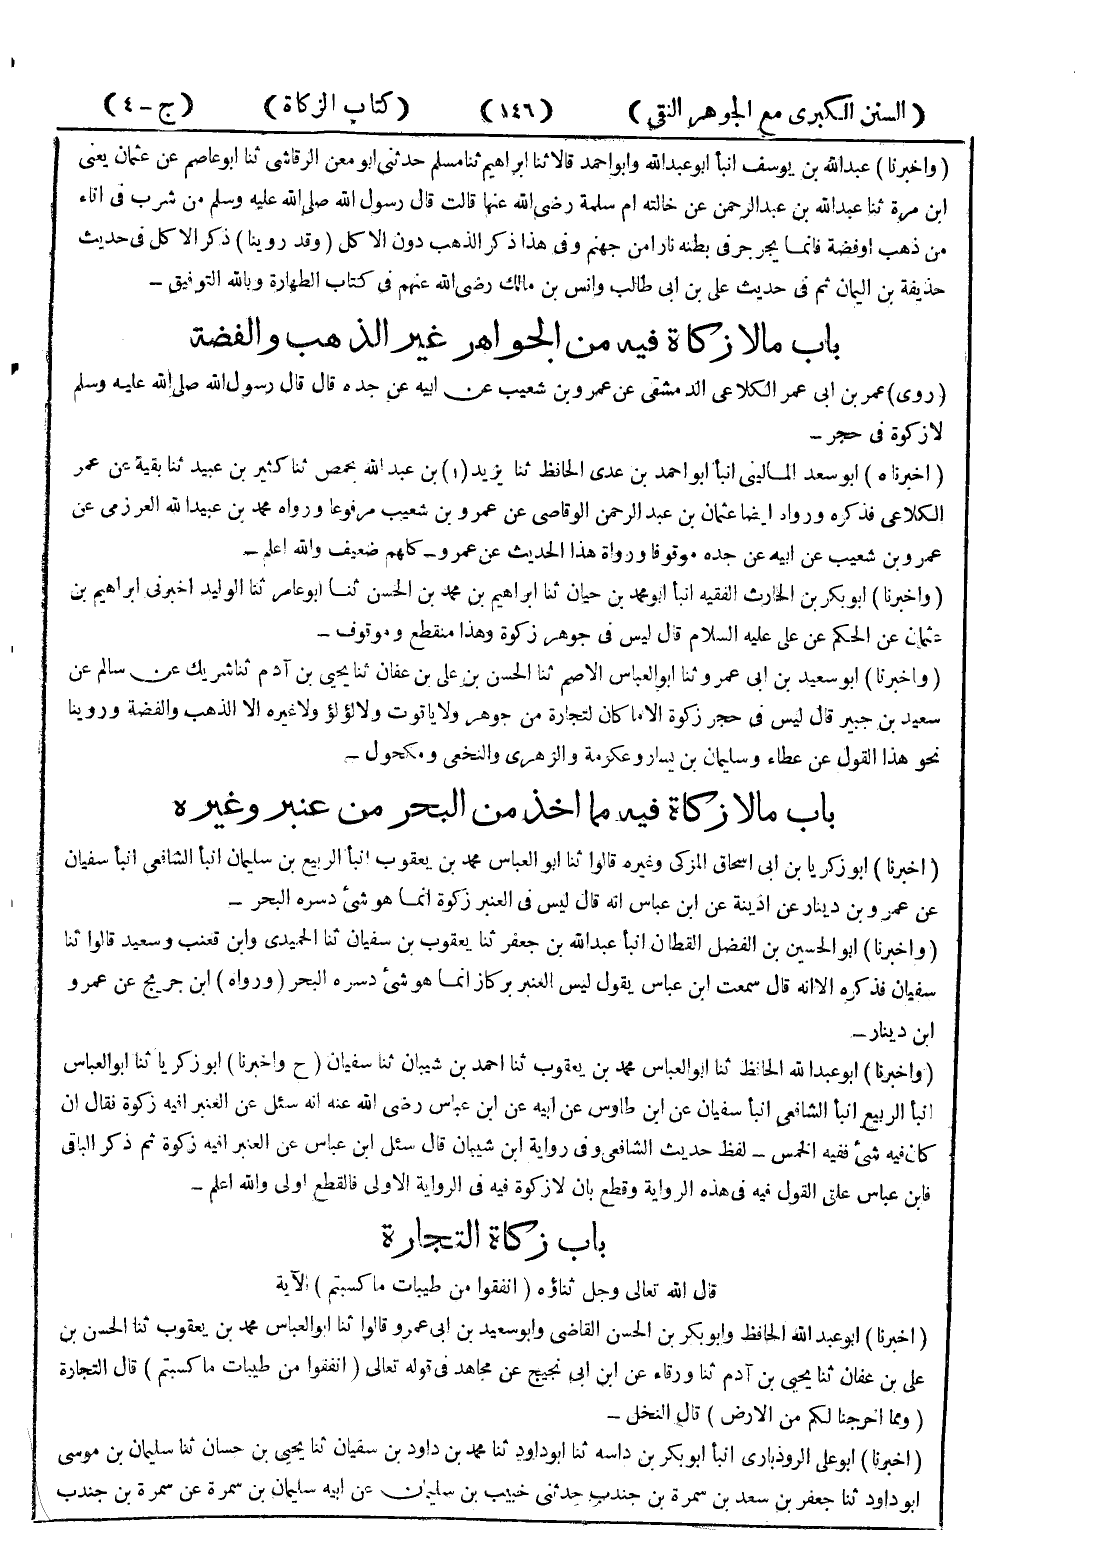 ( السنن الكبرى مع الجوهر النقي ) ( ١٤٦ ) ( كتاب الزكاة ) ( ج – ٤ )
( واخبرنا ) عبدالله بن يوسف انبأ ابوعبدالله وابواحمد قالا ثنا ابراهيم ثنا مسلم حدثنى ابو معن الرقاشى ثنا ابوعاصم عن عثمان يعنى
ابن مرة ثنا عبدالله بن عبدالرحمن عن خالته ام سلمة رضى الله عنها قالت قال رسول الله صلى الله عليه وسلم من شرب فى اناء
من ذهب اوفضة فانما يجرجر فى بطنه نارا من جهنم وفى هذا ذكر الذهب دون الاكل ( وقد روينا ) ذكر الاكل فى حديث
حذيفة بن اليمان ثم فى حديث على بن ابى طالب وانس بن مالك رضى الله عنهم فى كتاب الطهارة وبالله التوفيق –
باب مالا زكاة فيه من الجواهر غير الذهب والفضة
( روى ) عمر بن ابى عمر الكلاعى الدمشقى عن عمرو بن شعيب عن ابيه عن جده قال قال رسول الله صلى الله عليه وسلم
لازكوة فى حجر –
( اخبرناه ) ابوسعد المالينى انبأ ابواحمد بن عدى الحافظ ثنا يزيد (١) بن عبد الله بحمص ثنا كثير بن عبيد ثنا بقية عن عمر
الكلاعى فذكره ورواه ايضا عثمان بن عبد الرحمن الوقاصى عن عمرو بن شعيب مرفوعا ورواه محمد بن عبيدالله العرزمى عن
عمرو بن شعيب عن ابيه عن جده موقوفا ورواة هذا الحديث عن عمرو – كلهم ضعيف والله اعلم –
( واخبرنا ) ابوبكر بن الحارث الفقيه انبأ ابومحمد بن حيان ثنا ابراهيم بن محمد بن الحسن ثنا ابوعامر ثنا الوليد اخبرنى ابراهيم بن
عثمان عن الحكم عن على عليه السلام قال ليس فى جوهر زكوة وهذا منقطع وموقوف –
( واخبرنا ) ابوسعيد بن ابى عمرو ثنا ابوالعباس الاصم ثنا الحسن بن على بن عفان ثنا يحيى بن آدم ثنا شريك عن سالم عن
سعيد بن جبير قال ليس فى حجر زكوة الا ما كان لتجارة من جوهر ولاياقوت ولالؤلؤ ولاغيره الا الذهب والفضة وروينا
نحو هذا القول عن عطاء وسليمان بن يسار وعكرمة والزهرى والنخعى ومكحول –
باب مالا زكاة فيه مما اخذ من البحر من عنبر وغيره
( اخبرنا ) ابوزكريا بن ابى اسحاق المزكى وغيره قالوا ثنا ابو العباس محمد بن يعقوب انبأ الربيع بن سليمان انبأ الشافعى انبأ سفيان
عن عمرو بن دينار عن اذينة عن ابن عباس انه قال ليس فى العنبر زكوة انما هو شئ دسره البحر –
( واخبرنا ) ابوالحسين بن الفضل القطان انبأ عبدالله بن جعفر ثنا يعقوب بن سفيان ثنا الحميدى وابن قعنب وسعيد قالوا ثنا
سفيان فذكره الاانه قال سمعت ابن عباس يقول ليس العنبر بركاز انما هو شئ دسره البحر ( ورواه ) ابن جريج عن عمرو
ابن دينار –
( واخبرنا ) ابوعبدالله الحافظ ثنا ابوالعباس محمد بن يعقوب ثنا احمد بن شيبان ثنا سفيان ( ح واخبرنا ) ابوزكريا ثنا ابوالعباس
انبأ الربيع انبأ الشافعى انبأ سفيان عن ابن طاوس عن ابيه عن ابن عباس رضى الله عنه انه سئل عن العنبر افيه زكوة فقال ان
كان فيه شئ ففيه الخمس – لفظ حديث الشافعى وفى رواية ابن شيبان قال سئل ابن عباس عن العنبر افيه زكوة ثم ذكر الباقى
فابن عباس علق القول فيه فى هذه الرواية وقطع بان لازكوة فيه فى الرواية الاولى فالقطع اولى والله اعلم –
باب زكاة التجارة
قال الله تعالى وجل ثناؤه ( انفقوا من طيبات ما كسبتم ) الآية
( اخبرنا ) ابوعبد الله الحافظ وابوبكر بن الحسن القاضى وابوسعيد بن ابى عمرو قالوا ثنا ابوالعباس محمد بن يعقوب ثنا الحسن بن
على بن عفان ثنا يحيى بن آدم ثنا ورقاء عن ابن ابى نجيح عن مجاهد فى قوله تعالى ( انفقوا من طيبات ما كسبتم ) قال التجارة
( ومما اخرجنا لكم من الارض ) قال النخل –
( اخبرنا ) ابوعلى الروذبارى انبأ ابوبكر بن داسه ثنا ابوداود ثنا محمد بن داود بن سفيان ثنا يحيى بن حسان ثنا سليمان بن موسى
ابوداود ثنا جعفر بن سعد بن سمرة بن جندب حدثنى خبيب بن سليمان عن ابيه سليمان بن سمرة عن سمرة بن جندب